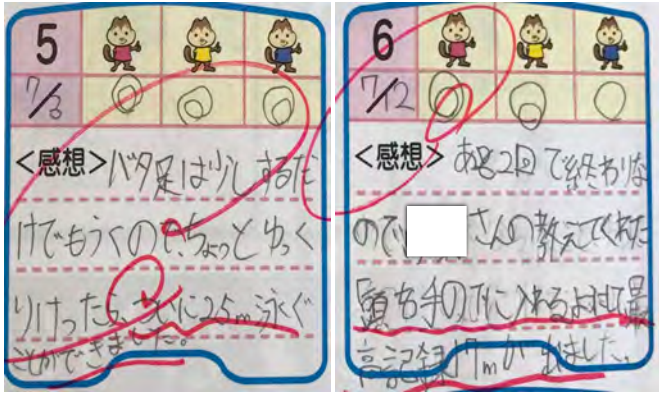 5
7/3
<感想>バタ足は少しするだ
けでもうくので、ちょっとゆっく
りけったら、ついに25m泳ぐ
ことができました。
6
7/12
<感想>あと2回で終わりな
ので、さんの教えてくれた
「頭を手の下に入れる」
高記録17mが出ました。